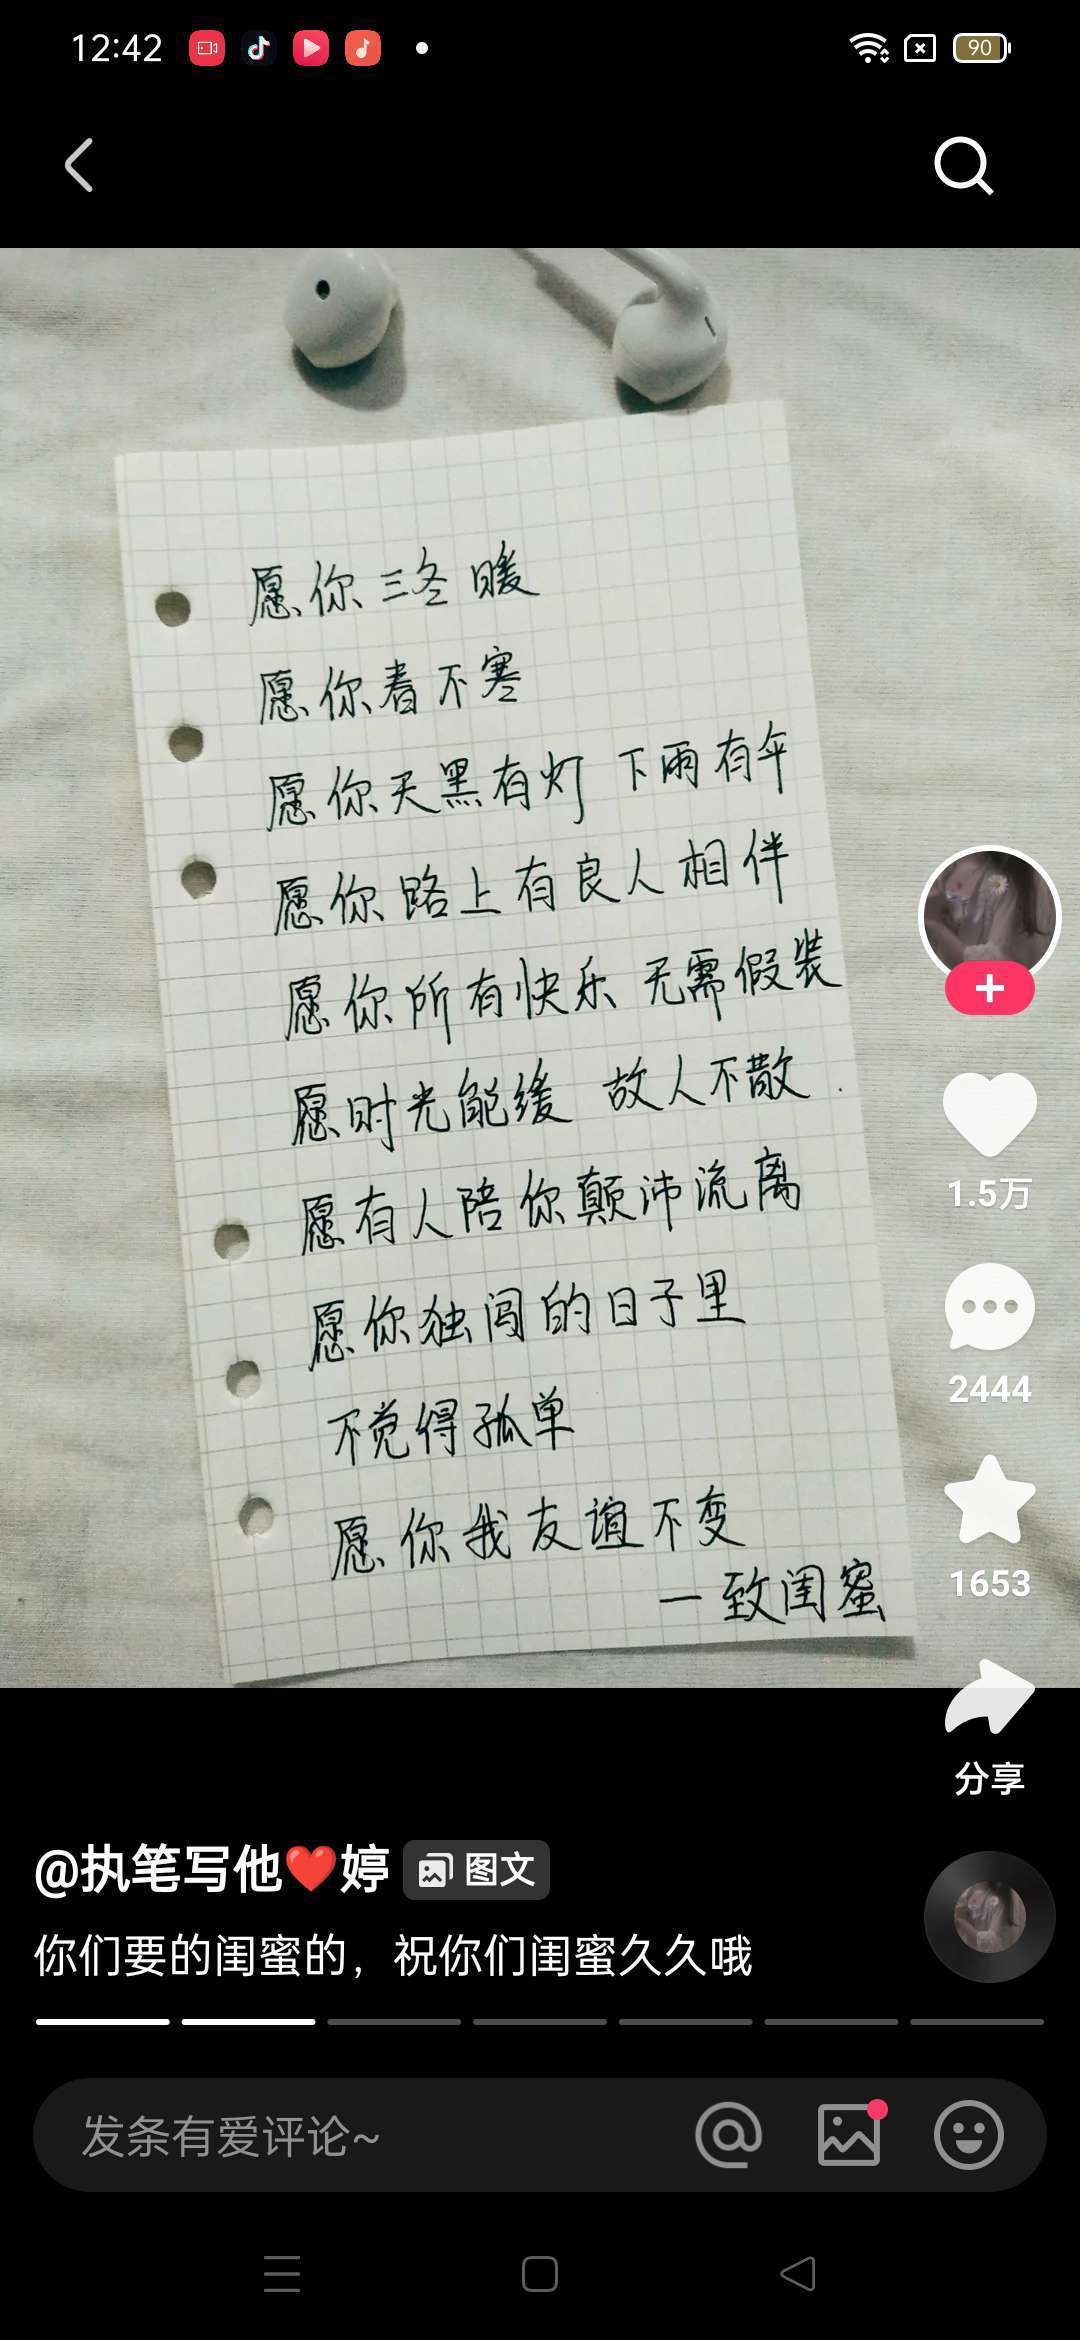 12:42
90
愿你三冬暖
愿你春不寒
愿你天黑有灯 下雨有伞
愿你路上有良人相伴
愿你所有快乐 无需假装
愿时光能缓 故人不散
愿有人陪你颠沛流离
愿你独闯的日子里
不觉得孤单
愿你我友谊不变
一致闺蜜
1.5万
2444
1653
分享
@执笔写他❤️婷 图文
你们要的闺蜜的，祝你们闺蜜久久哦
发条有爱评论~